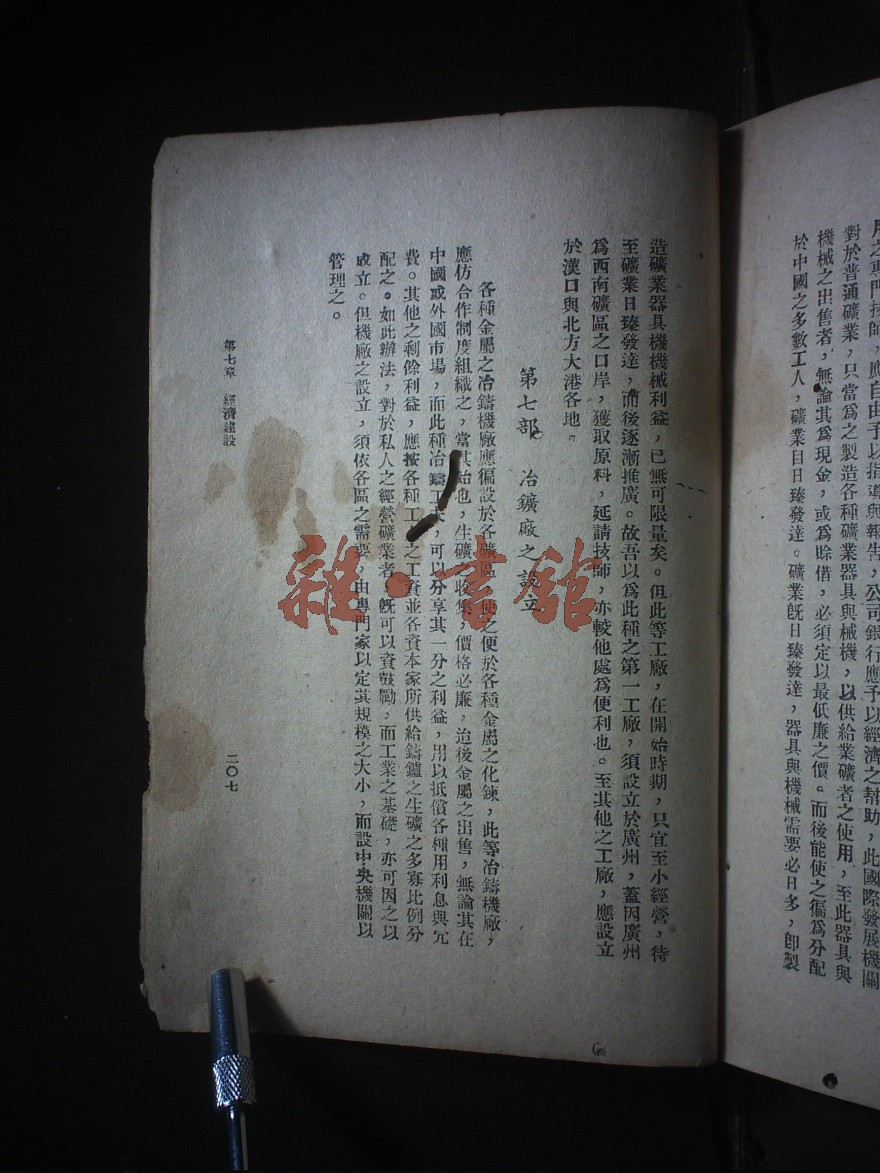 用之專門技師，應自由予以指導與報告，公司銀行應予以經濟之幫助，此國際發展機關
對於普通礦業，只當爲之製造各種礦業器具與械機，以供給業礦者之使用，至此器具與
機械之出售者，無論其爲現金，或爲賒借，必須定以最低廉之價。而後能使之徧爲分配
於中國之多數工人，礦業日日臻發達。礦業旣日臻發達，器具與機械需要必日多，卽製
造礦業器具機機械利益，已無可限量矣。但此等工廠，在開始時期，只宜至小經營，待
至礦業日臻發達，而後逐漸推廣。故吾以爲此種之第一工廠，須設立於廣州，蓋因廣州
爲西南礦區之口岸，獲取原料，延請技師，亦較他處爲便利也。至其他之工廠，應設立
於漢口與北方大港各地。
第七部　冶鑛廠之設立
各種金屬之冶鑄機廠應徧設於各礦區，使之便於各種金屬之化鍊，此等冶鑄機廠，
應仿合作制度組織之，當其始也，生礦之收集，價格必廉，迨後金屬之出售，無論其在
中國或外國市場，而此種冶鑄工夫，可以分享其一分之利益，用以抵償各種用利息與冗
費。其他之剩餘利益，應按各種工之工資並各資本家所供給鑄鑪之生礦之多寡比例分
配之。如此辦法，對於私人之經營礦業者，旣可以資鼓勵，而工業之基礎，亦可因之以
成立。但機廠之設立，須依各區之需要，由專門家以定其規模之大小，而設中央機關以
管理之。
第七章　經濟建設
二〇七
雜·書館